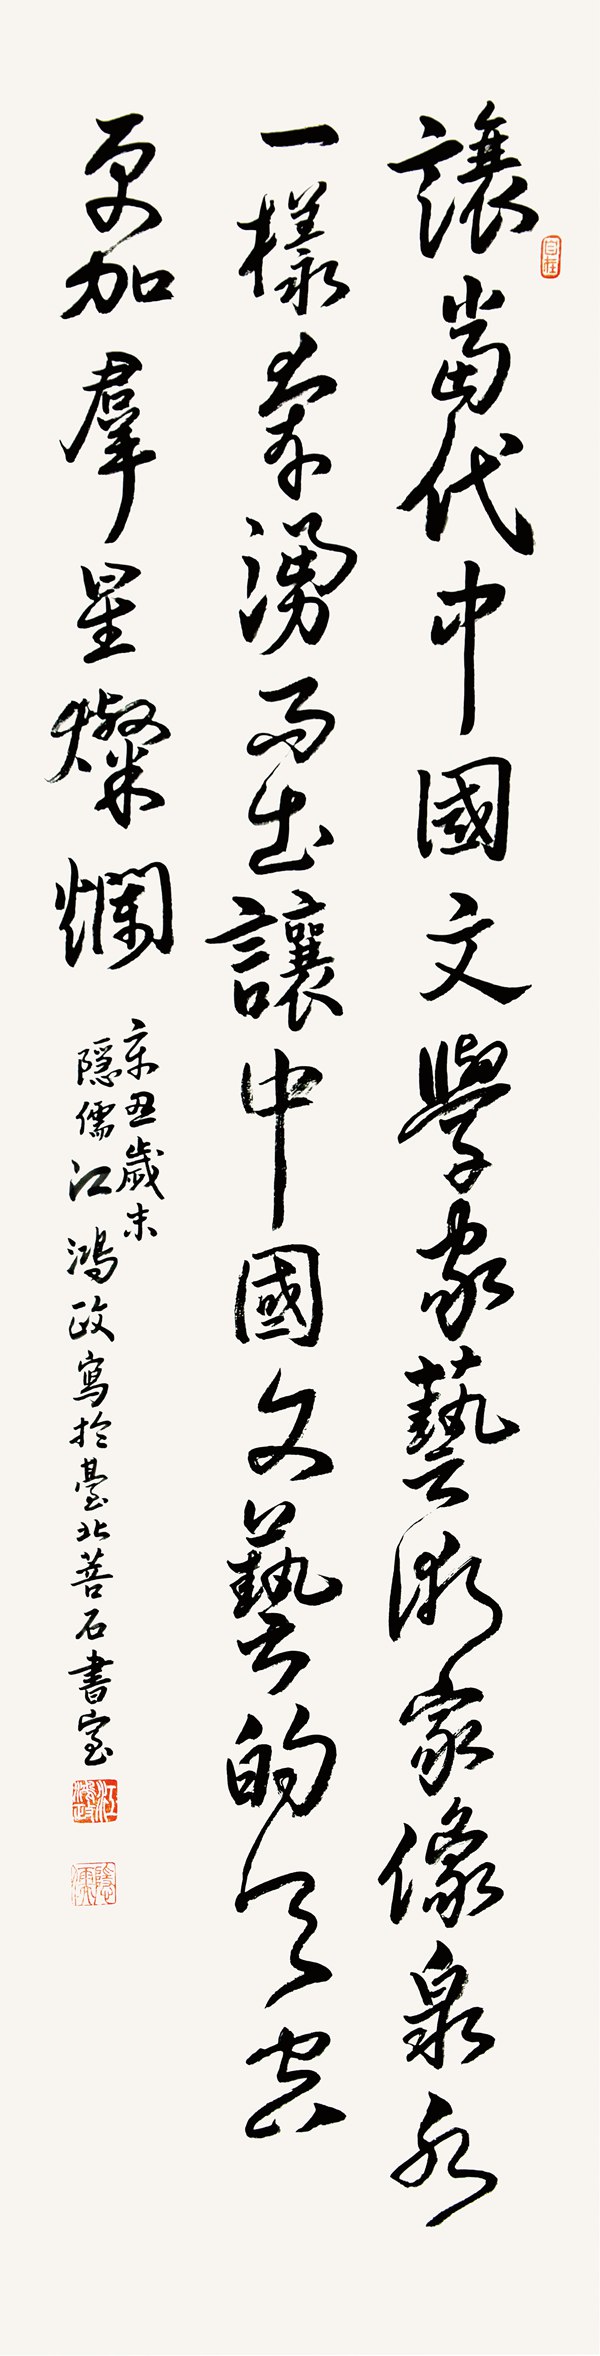 讓當代中國文學家藝術家像泉水
一樣奔湧而出讓中國文藝的天空
更加羣星燦爛
辛丑歲末
隱儒江鴻政寫於臺北菩石書室
自在
江鴻政
隱儒